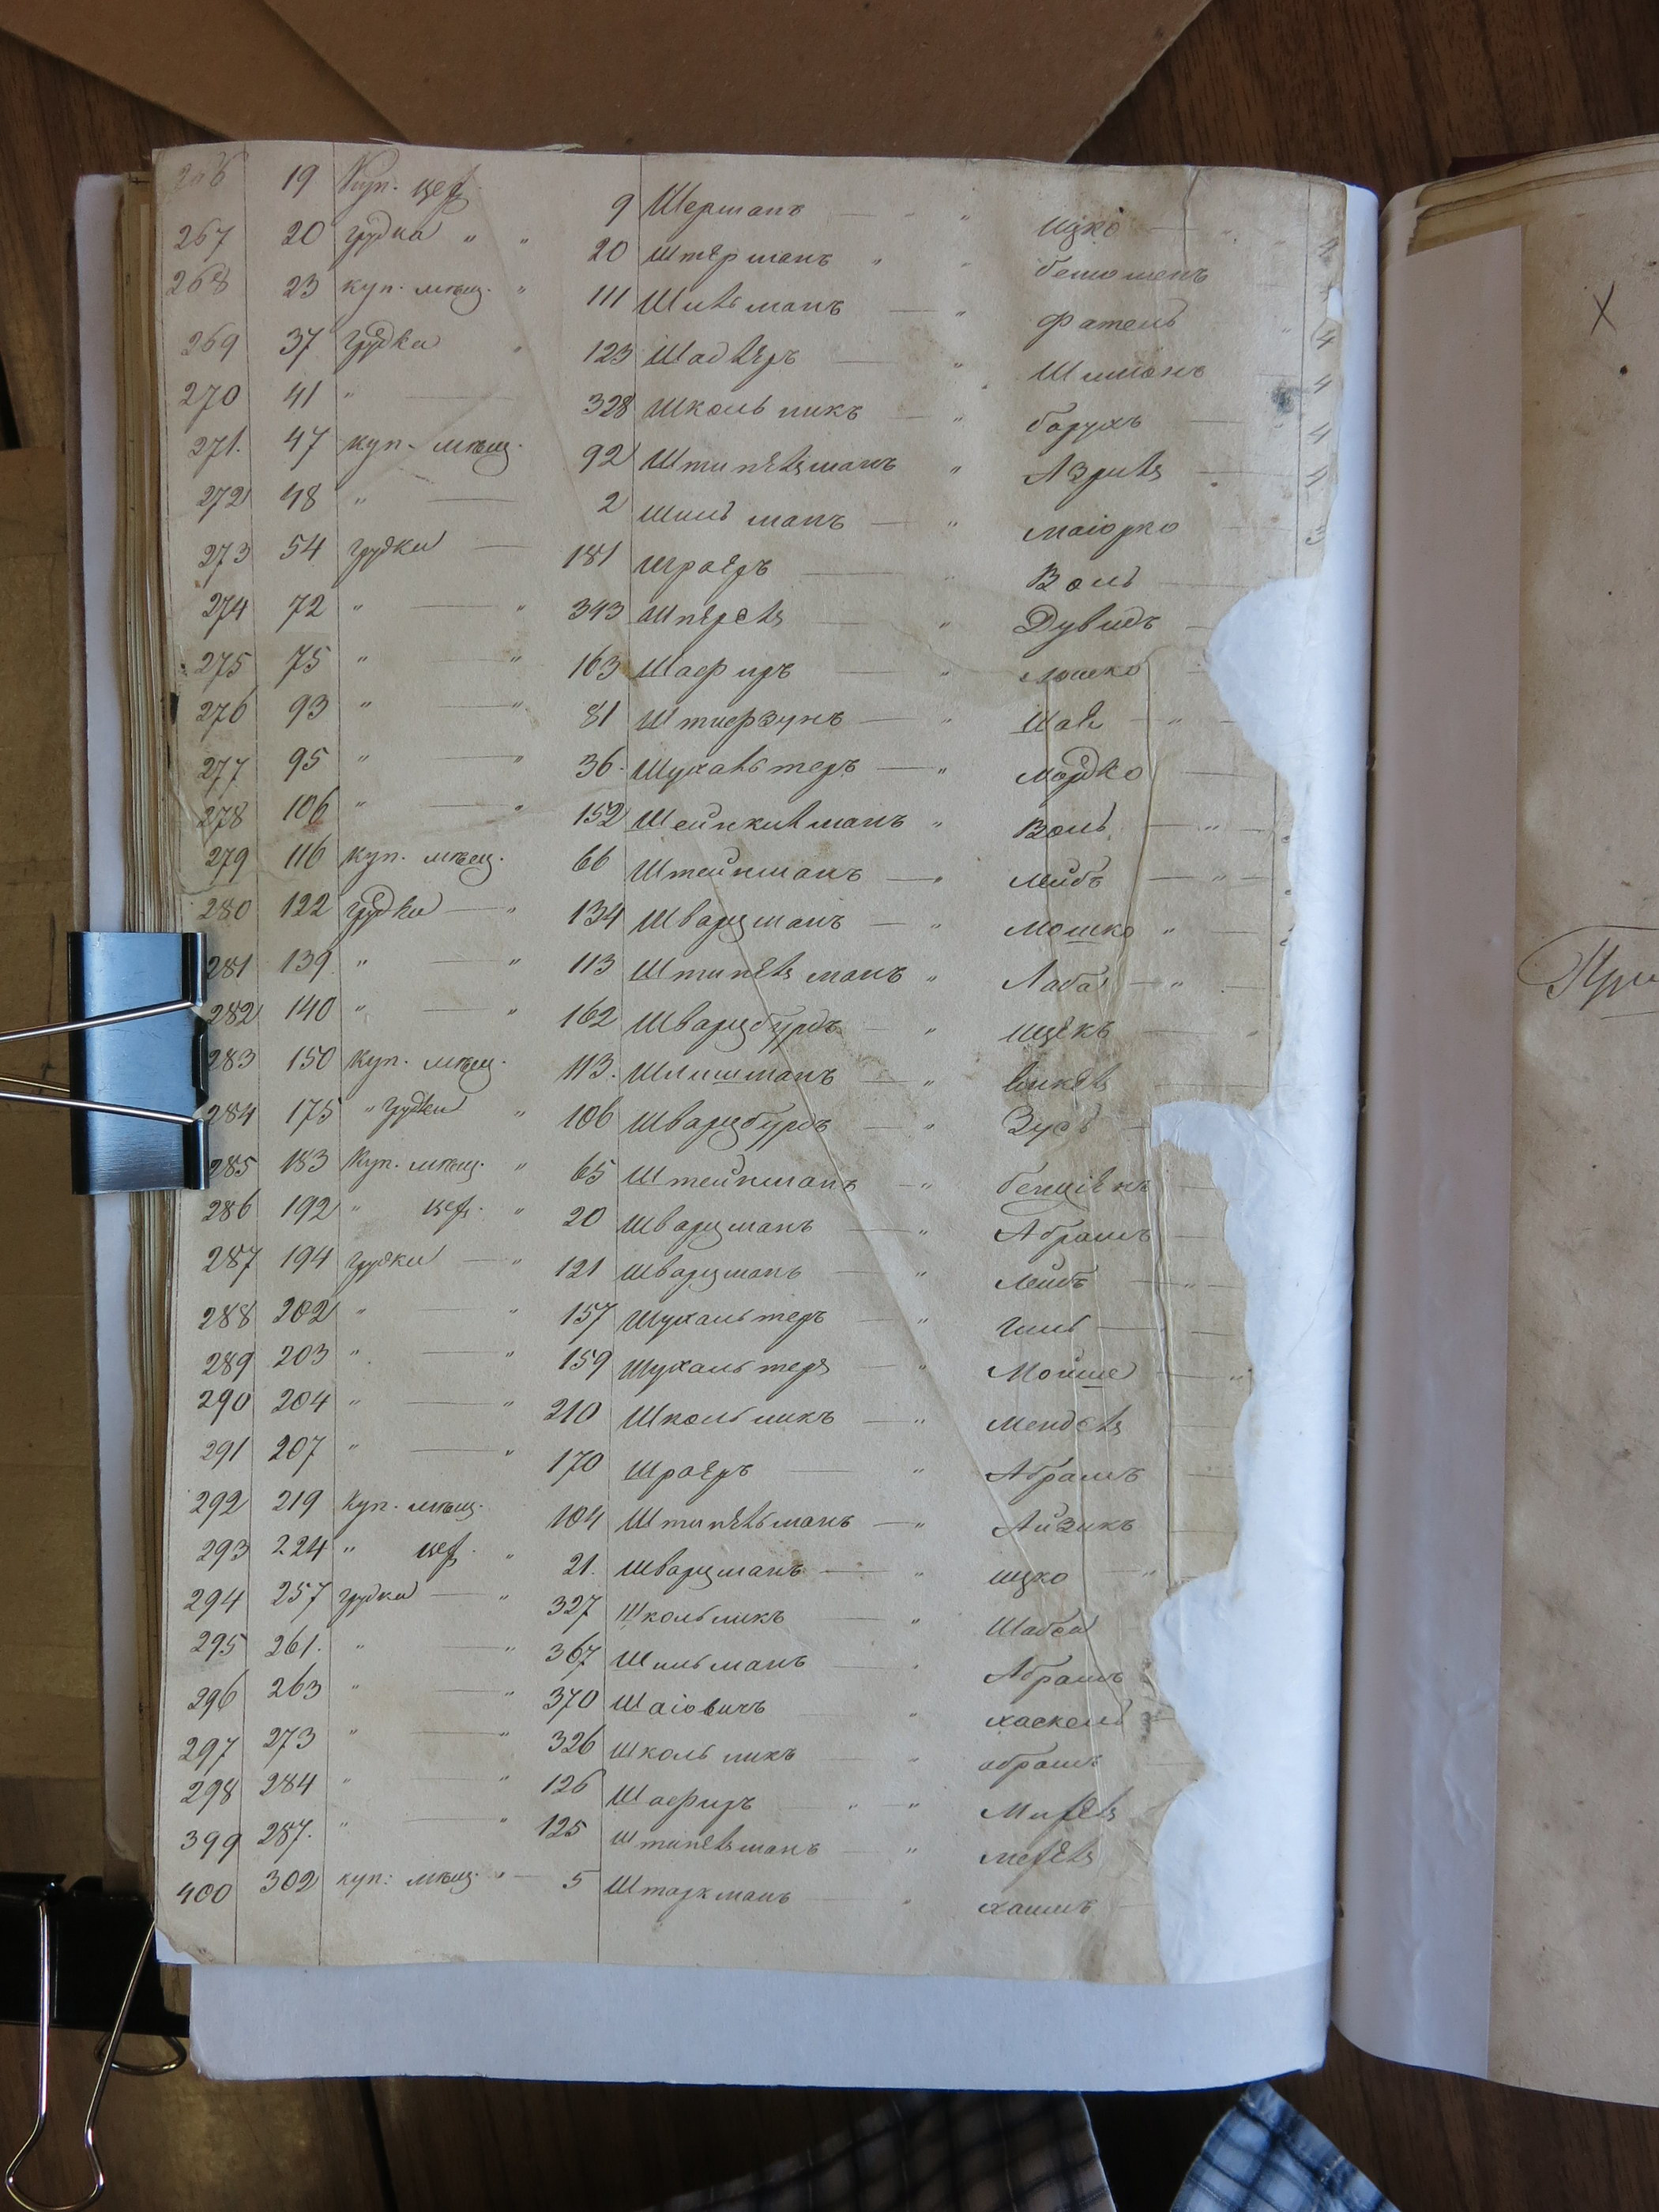 266 19 Куп. цех. 9 Шерманъ — " " Ицко — "
267 20 грудка " " 20 Штерманъ " " 4
268 23 куп. мѣщ. " 111 Шильманъ — " Фатель " 4
269 37 грудки " 123 Шадлеръ — " Шимонъ 4
270 41 " — 328 Школьникъ — " борухъ — 4
271. 47 куп. мѣщ. 92 Штипельманъ " Азриль — 4
272 48 " — 2 Шильманъ — " Маіорко 3
273 54 грудки — 181 Шраеръ — " Воль —
274 72 " — " 343 Шперель — " Дувидъ —
275 75 " — " 163 Шафиръ — " Мошко
276 93 " — " 81 — " Шая — " —
277 95 " — " 36. Шухальтеръ — " Мордко —
278 106 " — " 152 " Воль — " —
279 116 куп. мѣщ. 66 Штейнманъ — " Лейбъ — " —
280 122 грудки — " 134 Шварцманъ — " Мошко " —
281 139 " — " 113 Штипельманъ " Лаба — " —
282 140 " — " 162 Шварцбурдъ — " Ицекъ — "
283 150 Куп. мѣщ. 113. Шлишманъ — " —
284 175 " грудки " 106 Шварцбурдъ — " Зусь —
285 183 Куп. мѣщ. " 65 Штейнманъ — " бенціенъ —
286 192 " цех. " 20 Шварцманъ — " Абрамъ —
287 194 грудки — " 121 Шварцманъ — " Лейбъ — " —
288 202 " — " 157 Шухальтеръ — " Гиль — —
289 203 " — " 159 Шухальтеръ — " Мойше — "
290 204 " — " 210 Школьникъ — " Мендель —
291 207 " — " 170 Шраеръ — " Абрамъ —
292 219 Куп. мѣщ. 104 Штипельманъ — " Айзикъ —
293 224 " цех. " 21. Шварцманъ — " Ицко — "
294 257 грудки — " 327 Школьникъ — " Шабса
295 261. " — " 367 Шильманъ — " Абрамъ
296 263 " — " 370 Шаіовичъ — " хаскель —
297 273 " — " 326 Школьникъ — " абрамъ —
298 284 " — " 126 Шафиръ — " " Михель
399 287. " — " 125 Штипельманъ — " Мехель
400 302 куп: мѣщ. " — 5 Штаркманъ — " хаимъ —